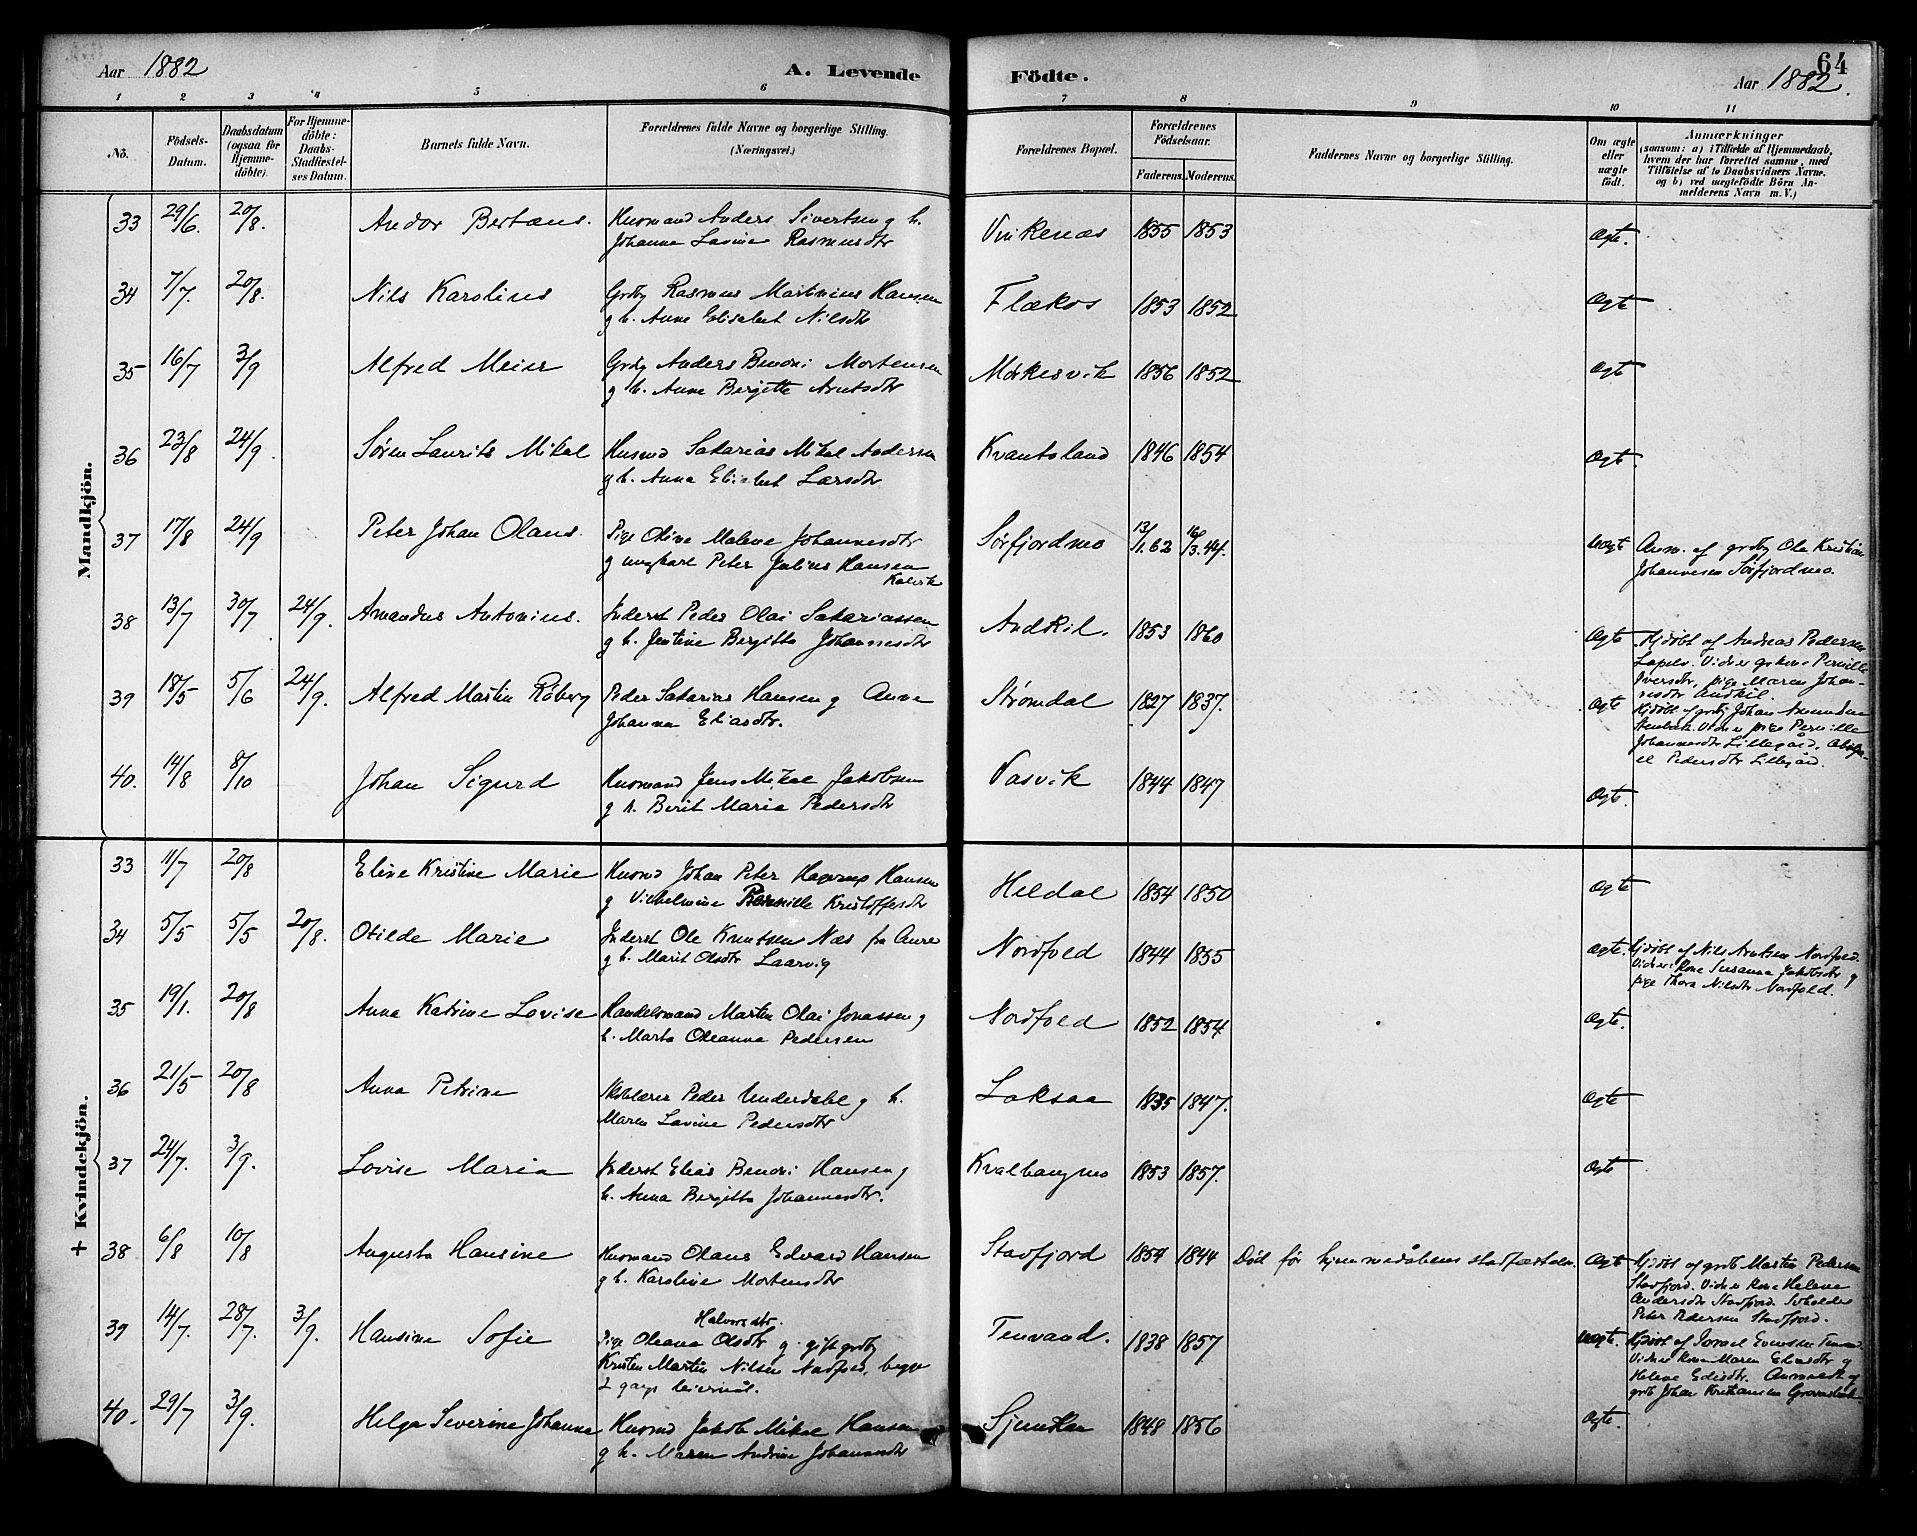 Aar 1882
A. Levende Födte.
64
Aar 1882.
1 2 3 4 5 6 7 8 9 10 11
No.
Födsels-Datum.
Daabsdatum (ogsaa for Hjemmedöbte).
For Hjemmedöbte: Daabs-Stadfæstelses Datum.
Barnets fulde Navn.
Forældrenes fulde Navne og borgerlige Stilling. (Næringsvei.)
Forældrenes Bopæl.
Forældrenes Födselsaar.
Faderens. Moderens.
Faddernes Navne og borgerlige Stilling.
Om ægte eller uægte födt.
Anmærkninger
(saasom: a) i Tilfælde af Hjemmedaab, hvem der har forrettet samme, med Tilföielse af to Daabsvidners Navne, og b) ved uegtefödte Börn Anmelderens Navn m. V.)
Mandkjön.
33 29/6. 20/8. Andor Bertæus. Husmand Anders Sivertsen g h. Vinkenæs 1855 1853 Ægte.
Johanna Lovine Rasmusdtr
34 7/7. 20/8. Nils Karolius Grdbg Rasmus Martinius Hansen Flækos 1853 1852 Ægte
g h. Anne Elisabet Nilsdtr
35 16/7 3/9 Alfred Meier Grdbg Anders Benoni Mortensen Mørkesvik 1856 1852 Ægt
g h. Anne Bergitte Arntsdtr
36 23/8 24/9. Søren Laurits Mikal Husmd Sakarias Mikal Andersen Kvantoland 1846 1854 Ægt
g h. Anna Elisabet Larsdtr
37 17/8 24/9 Peter Johan Olaus. Pige Oline Malene Johannesdtr Sørfjordmo 13/1.62 16/3.44. uægte Anm. af grdbg Ole Kristian
g ungkarl Peter Julius Hansen Johannesen Sørfjordmo.
Kalvik
38 13/7 30/7 24/9. Amandus Antonius. Inderst Peder Olai Sakariassen Andkil. 1853 1860 Ægte Hjdøbt af Andreas Pedersen
g h. Jentine Bergitte Johannesdtr
Vidner gkone Pernille
Iversdtr, pige Maren Johannesdtr Andkil.
39 18/5 5/6 24/9. Alfred Martin Røberg Peder Sakarias Hansen g Anne Strømdal 1827 1837. Ægte Hjdøbt af grdbg Johan
Johanna Eliasdtr.
Vidner pige Pernille
Johannesdtr Lillegård,
Pedersdtr Lillegård.
40. 14/8 8/10 Johan Sigurd Husmand Jens Mikal Jakobsen Vasvik 1844 1847 Ægte.
g h. Berit Maria Pedersdtr
+ Kvindekjön.
33 11/7 20/8 Eline Kristine Marie Husmd Johan Peter Hagerup Hansen Heldal 1854 1850 Ægte
g Vilhelmine Pernille Kristoffersdtr
34 5/5 5/5 20/8. Otilde Marie Inderst Ole Knutsen Næs fra Aure Nordfold 1844 1855 Ægte. Hjdøbt af Nils Arntsen Nordfold.
g h. Marit Olsdtr Laarvig Vidner: Kone Susanna Jakobsdtr g
pige Thora Nilsdtr Nordfold.
35 19/1. 20/8 Anna Katrine Lovise Handelsmand Martin Olai Jonassen g Nordfold 1852 1854 Ægte.
h. Marta Oleanna Pedersen
36 21/5 20/8 Anna Petrine Skolelærer Peder Underdahl g h. Laksaa 1835 1847. Ægte
Maren Lovine Pedersdtr
37 24/7. 3/9. Lovise Maria Inderst Elias Benoni Hansen g Kvalhaugmo 1853 1857. Ægte
h. Anna Bergitta Johannesdtr.
38 6/8 10/8 Augusta Hansine Husmand Olaus Edvard Hansen Stavfjord 1854 1844 Død før hjemmedåbens stadfæstelse. Ægte Hjdøbt af grdb Martin Pedersen
g h. Karoline Mortensdtr Stavfjord. Vidner Kone Helene
Andersdtr Stavfjord.
Peter Pedersen Stavfjord.
39 14/7. 28/7. 3/9. Hansine Sofie Pige Oleana Olsdtr g. gift grdbg Tenvand. 1838 1857 uægte. Hjdøbt af Israel
Halvorsdtr.
Kristen Martin Nilsen Nordfold, begge Vidner Kone Maren Eliasdtr g
2 gangs leiermål. Helene Anmeldt af
grdb Johan Kristiansen
40. 29/7 3/9. Helga Severine Johanne Husmd Jakob Mikal Hansen Sjunkan 1848 1856 Ægte.
g h. Maren Andrine Johannesdtr